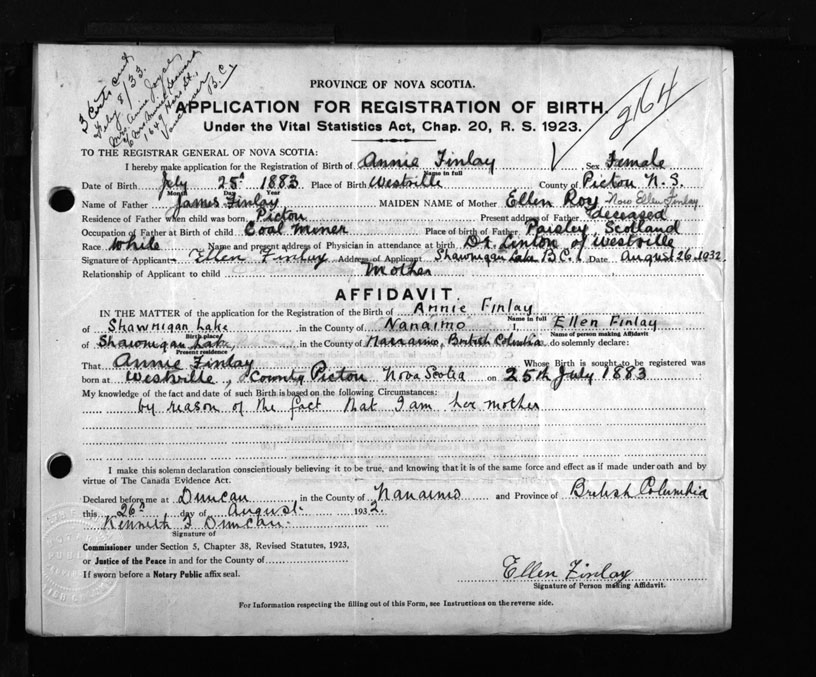 3 Certs sent
July 8/33.
Mrs Annie Joyce
1649 St.
Vancouver
B.C.
264
PROVINCE OF NOVA SCOTIA.
APPLICATION FOR REGISTRATION OF BIRTH.
Under the Vital Statistics Act, Chap. 20, R. S. 1923.
TO THE REGISTRAR GENERAL OF NOVA SCOTIA:
I hereby make application for the Registration of Birth of Annie Finlay Sex Female
Name in full
Date of Birth July 25d 1883 Place of Birth Westville County of Pictou N.S.
Month Day Year
Name of Father James Finlay MAIDEN NAME of Mother Ellen Roy Now Ellen Finlay
Residence of Father when child was born Pictou Present address of Father deceased
Occupation of Father at Birth of child Coal miner Place of birth of Father Paisley Scotland
Race White Name and present address of Physician in attendance at birth Dr. Linton of Westville
Signature of Applicant Ellen Finlay Address of Applicant Shawnigan Lake B.C. Date August 26 1932
Relationship of Applicant to child Mother
AFFIDAVIT.
IN THE MATTER of the application for the Registration of the Birth of Annie Finlay
Name in full
of Shawnigan Lake in the County of Nanaimo I, Ellen Finlay
Birth place/ Name of person making Affidavit
of Shawnigan Lake, in the County of Nanaimo, British Columbia do solemnly declare:
Present residence
That Annie Finlay Whose Birth is sought to be registered was
born at Westville, County Pictou Nova Scotia on 25th July 1883
My knowledge of the fact and date of such Birth is based on the following Circumstances:
by reason of the fact that I am her mother
I make this solemn declaration conscientiously believing it to be true, and knowing that it is of the same force and effect as if made under oath and by
virtue of The Canada Evidence Act.
Declared before me at Duncan in the County of Nanaimo and Province of British Columbia
this 26d day of August 1932.
Kenneth F Duncan.
Signature of
Commissioner under Section 5, Chapter 38, Revised Statutes, 1923,
or Justice of the Peace in and for the County of
If sworn before a Notary Public affix seal.
Ellen Finlay
Signature of Person making Affidavit.
For Information respecting the filling out of this Form, see Instructions on the reverse side.